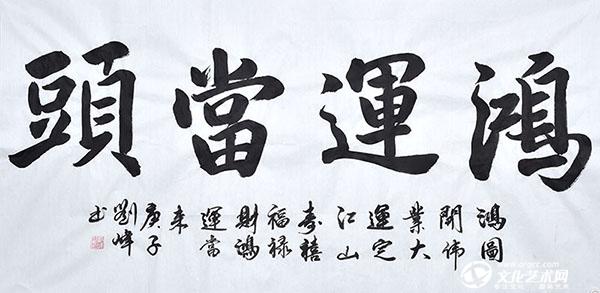 鴻運當頭
鴻圖
開偉
業大
運定
江山
壽禧
福禄
財鴻
運當
来
庚子
劉峰
书
文化艺术网
www.orgcc.com